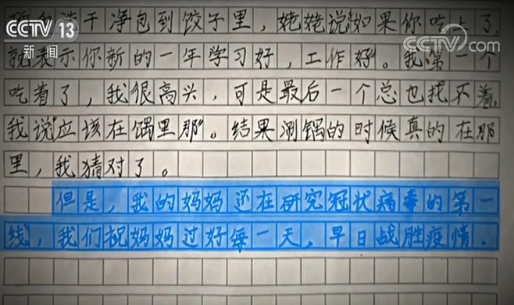 CCTV 13
新闻
CCTV.com
干净包到饺子里，姥姥说如果你吃上了
就表示你新的一年学习好，工作好。我第一个
吃着了，我很高兴，可是最后一个总也找不着，
我说"应该在锅里那"。结果涮锅的时候真的在那
里，我猜对了。
但是，我的妈妈还在研究冠状病毒的第一
线，我们祝妈妈过好每一天，早日战胜疫情。